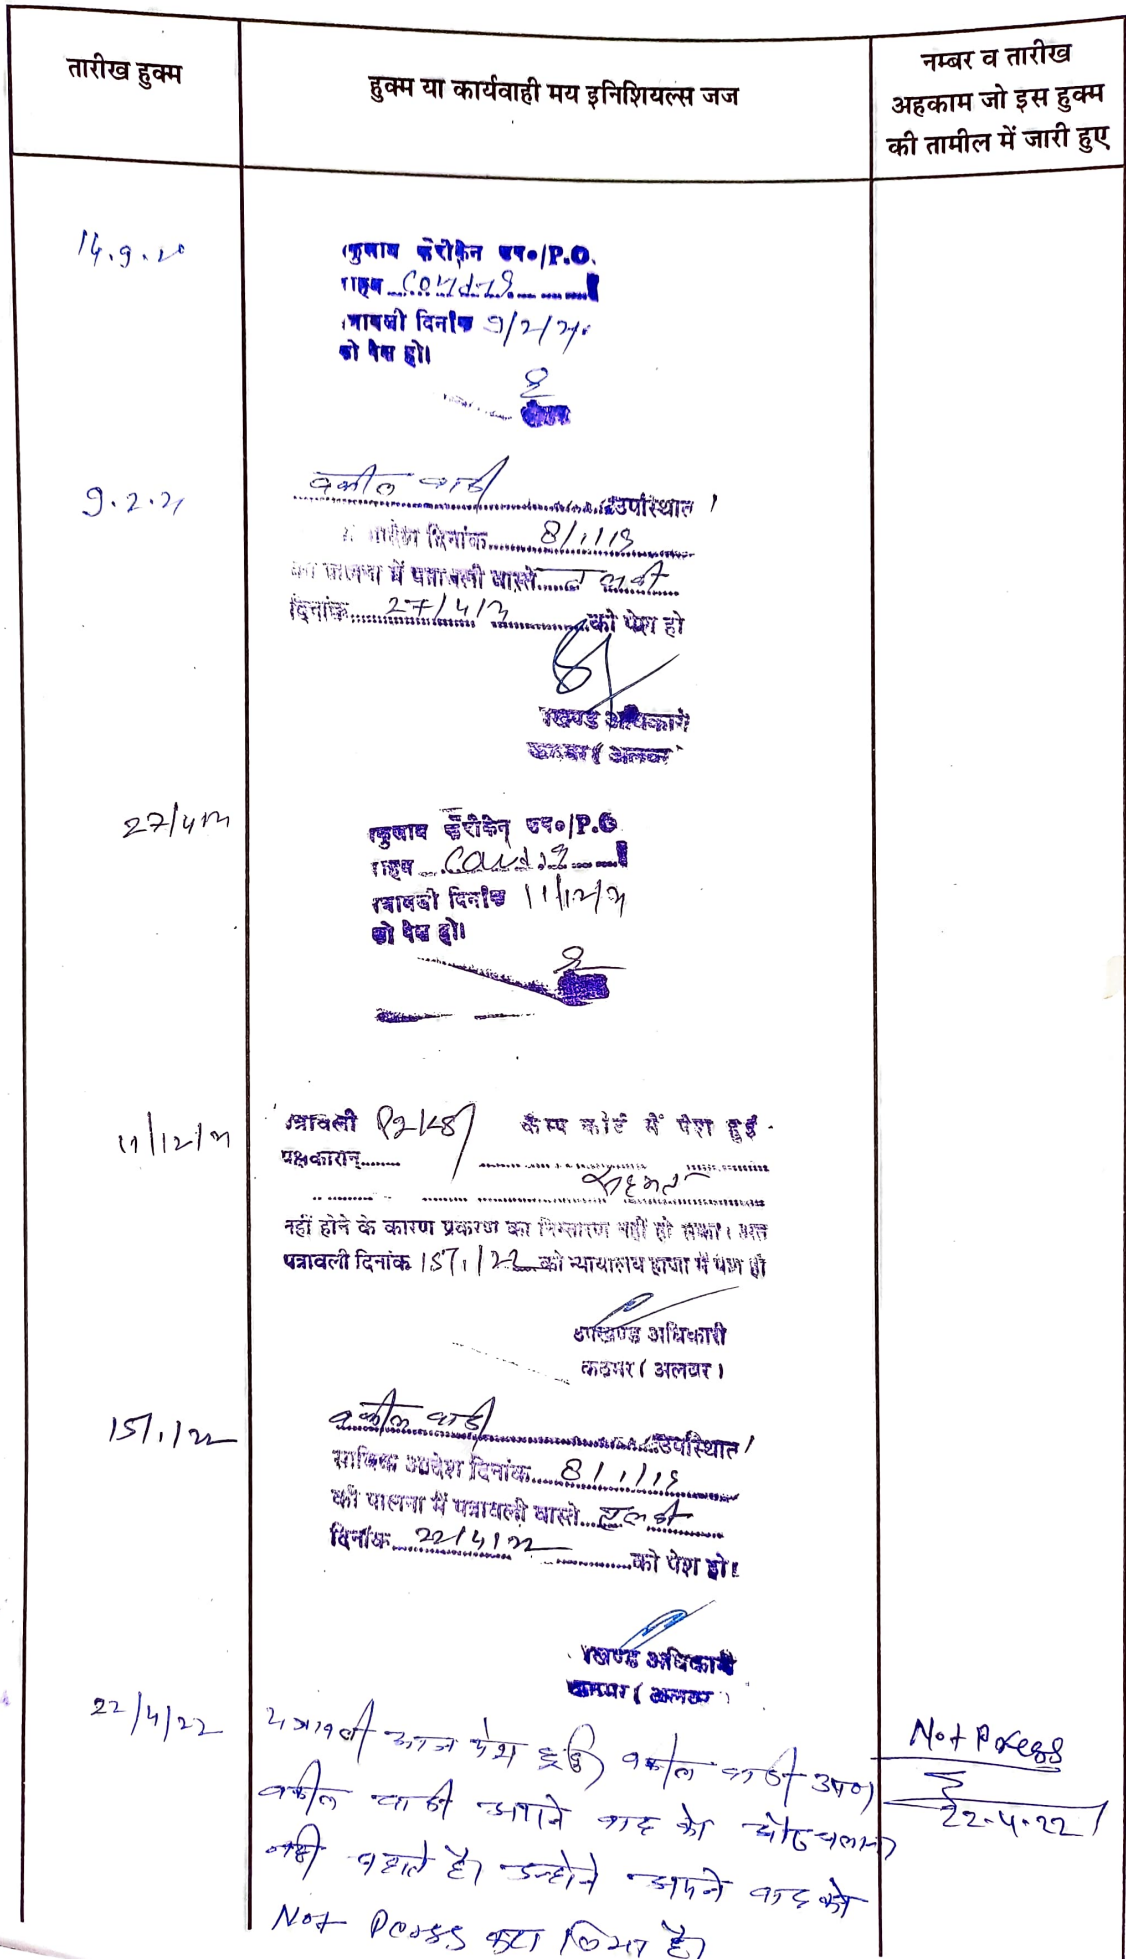 तारीख हुक्म
हुक्म या कार्यवाही मय इनिशियल्स जज
नम्बर व तारीख
अहकाम जो इस हुक्म
की तामील में जारी हुए
14.9.20
P.O.
Covid-19
दिनांक 9/2/21
को पेश हो।
9.2.21
वकील वादी उपस्थित
आदेश दिनांक 8/1/19
पालना में पत्रावली वास्ते
दिनांक 27/4/21 को पेश हो
खण्ड अधिकारी
कठूमर (अलवर
27/4/21
Covid 19
दिनांक 11/12/21
को पेश हो।
11/12/21
त्रावली कैम्प कोर्ट में पेश हुई
पक्षकारान्
सहमत
नहीं होने के कारण प्रकरण का निस्तारण नहीं हो सका। अत
पत्रावली दिनांक 15/1/22 को न्यायालय हाजा में पेश हो
उपखण्ड अधिकारी
कठूमर (अलवर)
15/1/22
वकील वादी उपस्थित
साबिक आदेश दिनांक 8/1/19
की पालना में पत्रावली वास्ते
दिनांक 22/4/22 को पेश हो।
खण्ड अधिकारी
कठूमर (अलवर
22/4/22
पत्रावली आज पेश हुई। वकील वादी उप०
वकील वादी अपने वाद को
नहीं चहाते है। उन्होने अपने वाद को
Not Press करा लिया है।
Not Press
22.4.22